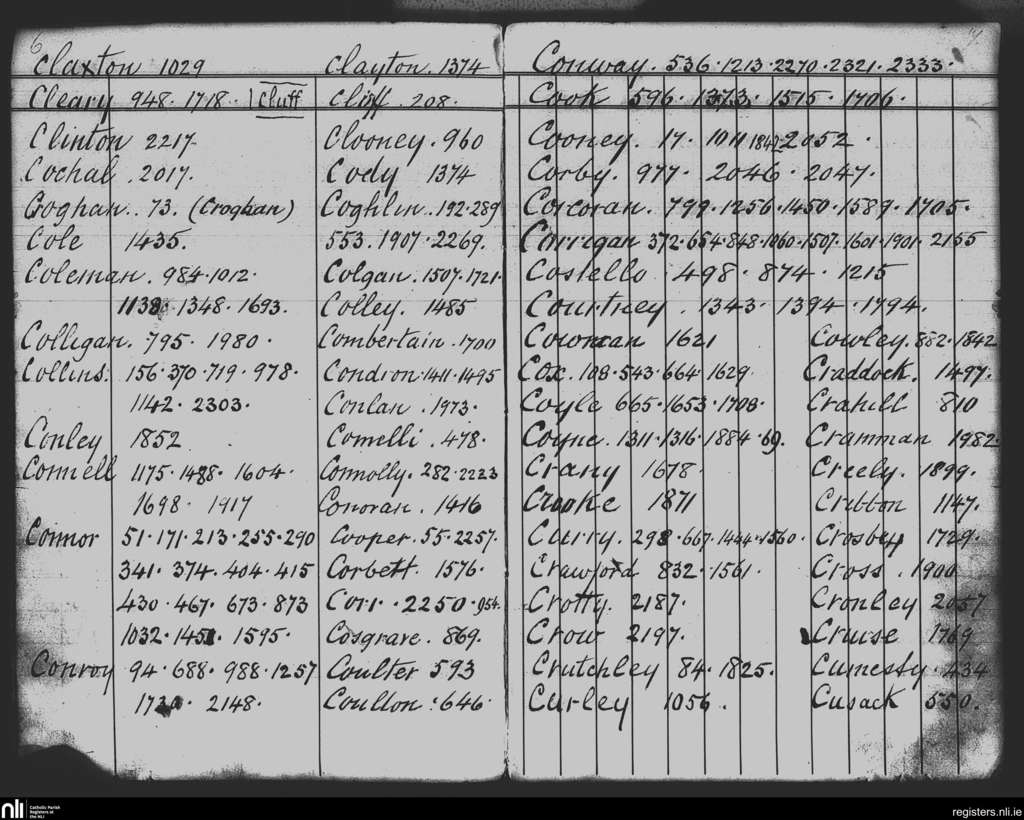 6
Claxton 1029
Cleary 948. 1718. Cluff
Clinton 2217
Cochal. 2017.
Goghan. 73. (Croghan)
Cole 1435.
Coleman. 984. 1012.
1348. 1693.
Colligan. 795. 1980.
Collins. 156. 370. 719. 978.
1142. 2303.
Conley 1852
Connell 1175. 1488. 1604.
1698. 1917
Connor 51. 171. 213. 255. 290
341. 374. 404. 415
430. 467. 673. 873
1032. 1451. 1595.
Conroy 94. 688. 988. 1257
2148.
Clayton. 1374
Cliff. 208.
Clooney. 960
Cody 1374
Coghlin. 192. 289
553. 1907. 2269.
Colgan. 1507. 1721
Colley. 1485
Combertain. 1700
Condron. 1411. 1495
Conlan. 1973.
Comelli. 478.
Connolly. 282. 2223
Conoran. 1416
Cooper. 55. 2257.
Corbett. 1576.
Corr. 2250. 954.
Cosgrave. 869.
Coulter 593
Coulton. 646.
Conway. 536. 1213. 2270. 2321. 2333.
Cook 596. 1373. 1515. 1706.
Cooney. 17. 1011 1842 2052.
Corby. 977. 2046. 2047.
Corcoran. 799. 1256. 1450. 1589. 1705.
Corrigan 372. 654. 848. 1060. 1507. 1601. 1901. 2155
Costello 498. 874. 1215
Courtney. 1343. 1394. 1794.
Cowman 1621
Cox. 108. 543. 664. 1629
Coyle 665. 1653. 1708.
Coyne. 1311. 1316. 1884. 69.
Crany 1678.
Crooke 1871
Curry. 298. 667. 1444. 1560.
Crawford 832. 1561.
Crotty. 2187.
Crow 2197.
Crutchley 84. 1825.
Curley 1056.
Cowley. 882. 1842
Craddock. 1497.
Crahill 810
Cramman 1982
Creely. 1899.
Cribbon 1147.
Crosbey 1729.
Cross. 1900
Cronley 2057
Cruise 1769
Cumesty. 434
Cusack 550.
nli
Catholic Parish
Registers at
the NLI
registers.nli.ie